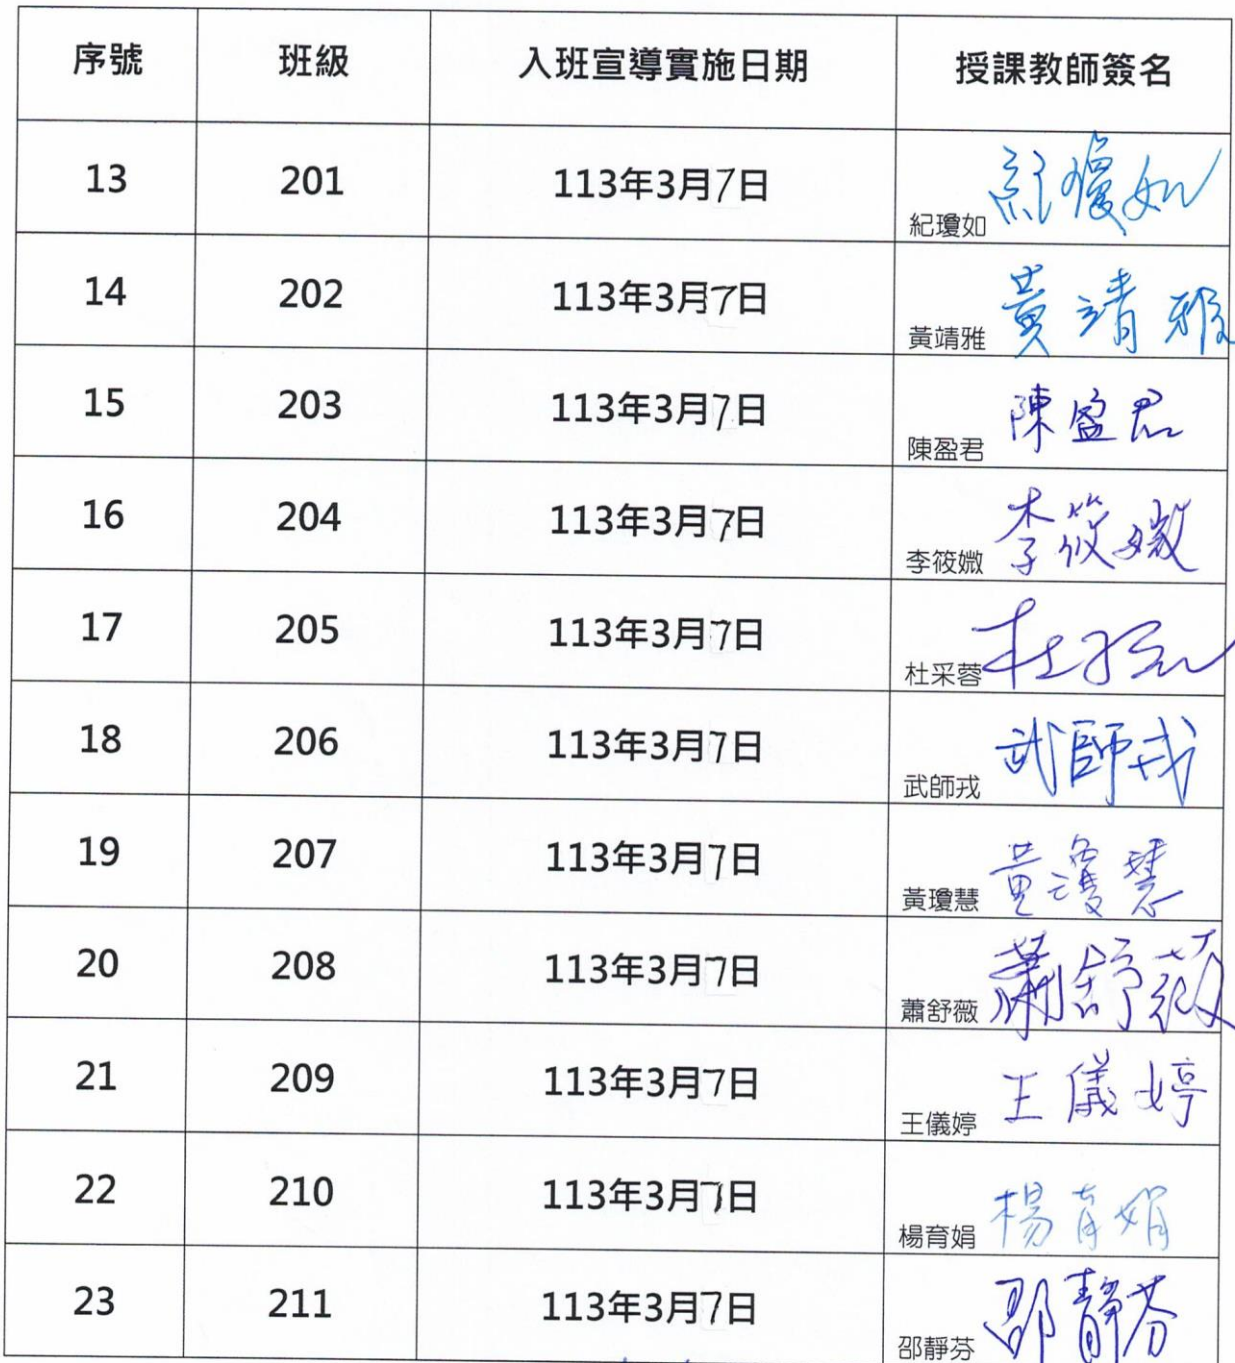 序號 班級 入班宣導實施日期 授課教師簽名
13 201 113年3月7日 紀瓊如 紀瓊如
14 202 113年3月7日 黃靖雅 黃靖雅
15 203 113年3月7日 陳盈君 陳盈君
16 204 113年3月7日 李筱媺 李筱媺
17 205 113年3月7日 杜采蓉 杜采蓉
18 206 113年3月7日 武師戎 武師戎
19 207 113年3月7日 黃瓊慧 黃瓊慧
20 208 113年3月7日 蕭舒薇 蕭舒薇
21 209 113年3月7日 王儀婷 王儀婷
22 210 113年3月7日 楊育娟 楊育娟
23 211 113年3月7日 邵靜芬 邵靜芬